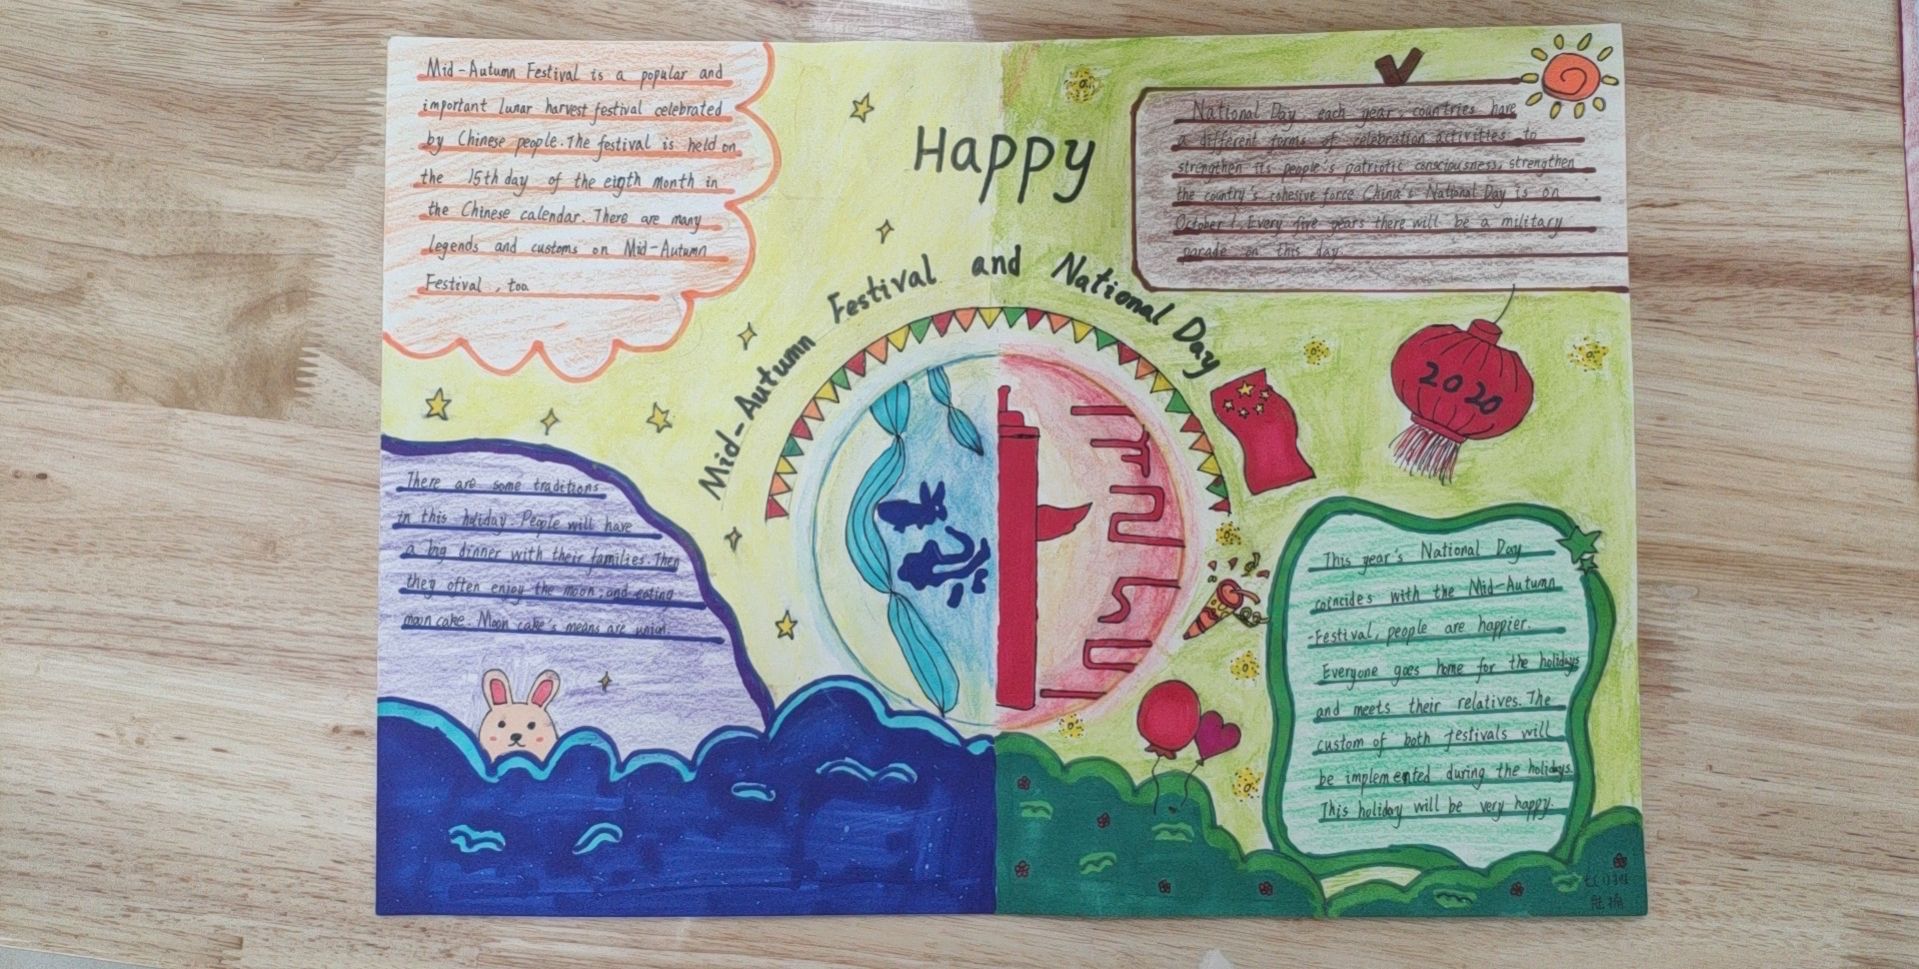 Mid-Autumn Festival is a popular and
important lunar harvest festival celebrated
by Chinese people. The festival is held on
the 15th day of the eigth month in
the Chinese calendar. There are many
legends and customs on Mid-Autumn
Festival, too.
Happy
Mid-Autumn Festival and National Day
National Day each year, countries have
a different forms of celebration activities to
strengthen its people's patriotic consciousness, strengthen
the country's cohesive force China's National Day is on
October 1. Every five years there will be a military
parade on this day.
2020
There are some traditions
in this holiday. People will have
a big dinner with their families. Then
they often enjoy the moon, and eating
moon cake. Moon cake's means are union.
This year's National Day
coincides with the Mid-Autumn
-Festival, people are happier.
Everyone goes home for the holidays
and meets their relatives. The
custom of both festivals will
be implemented during the holidays.
This holiday will be very happy.